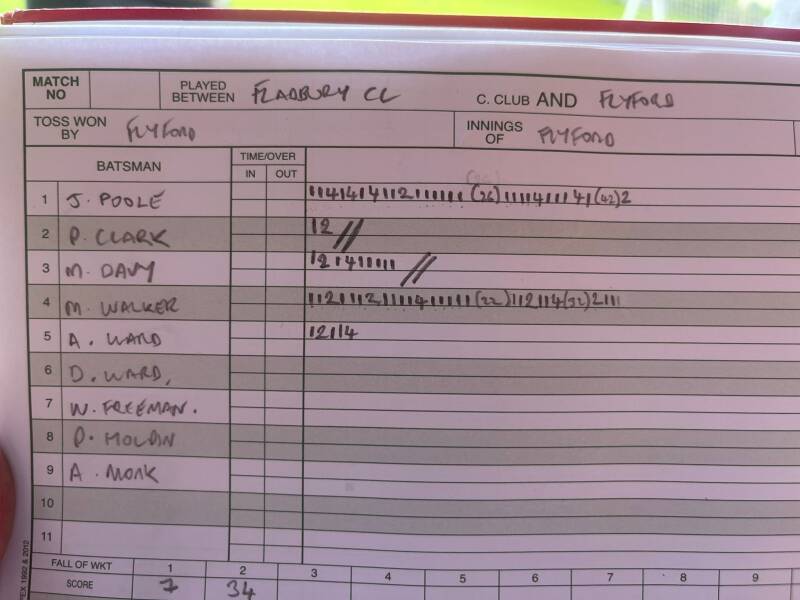 MATCH NO PLAYED BETWEEN FLADBURY CC C. CLUB AND FLYFORD
TOSS WON BY FLYFORD INNINGS OF FLYFORD
BATSMAN TIME/OVER
IN OUT
1 J. POOLE 114141411211111 (26) 1111411141 (42) 2
2 P. CLARK 12 //
3 M. DAVY 121411111 //
4 M. WALKER 1121112111141111 (22) 1112114 (32) 2111
5 A. WARD 12114
6 D. WARD,
7 W. FREEMAN.
8 D. MOLDIN
9 A. MONK
10
11
FALL OF WKT 1 2 3 4 5 6 7 8 9
SCORE 7 34